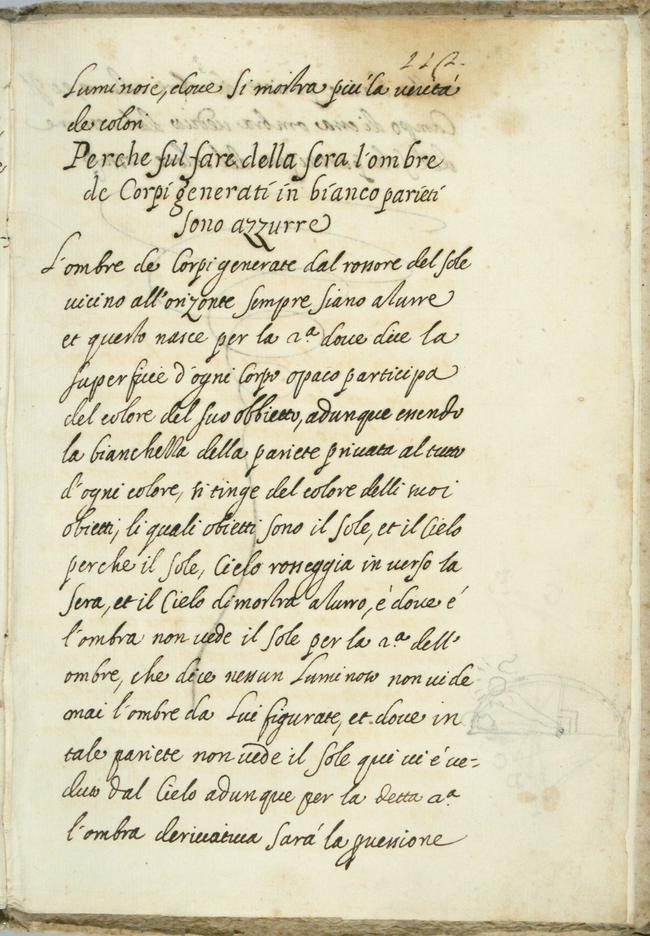 112.
Luminose, dove si mostra più la verità
de colori
Perche sul fare della sera l'ombre
de Corpi generati in bianco parieti
sono azzurre
L'ombre de Corpi generate dal rossore del sole
vicino all'orizonte sempre siano azurre
et questo nasce per la 2.ª dove dice la
superficie d'ogni corpo opaco participa
del colore del suo obbietto, adunque essendo
la bianchezza della pariete privata al tutto
d'ogni colore, si tinge del colore delli suoi
obietti, li quali obietti sono il sole, et il Cielo
perche il sole, Cielo rosseggia in verso la
sera, et il Cielo dimostra azurro, é dove é
l'ombra non vede il sole per la 2.ª dell'
ombre, che dice nessun Luminoso non vide
mai l'ombre da Lui figurate, et dove in
tale pariete non vede il sole qui vi é ve=
duto dal Cielo adunque per la detta 2.ª
l'ombra derivativa sarà la